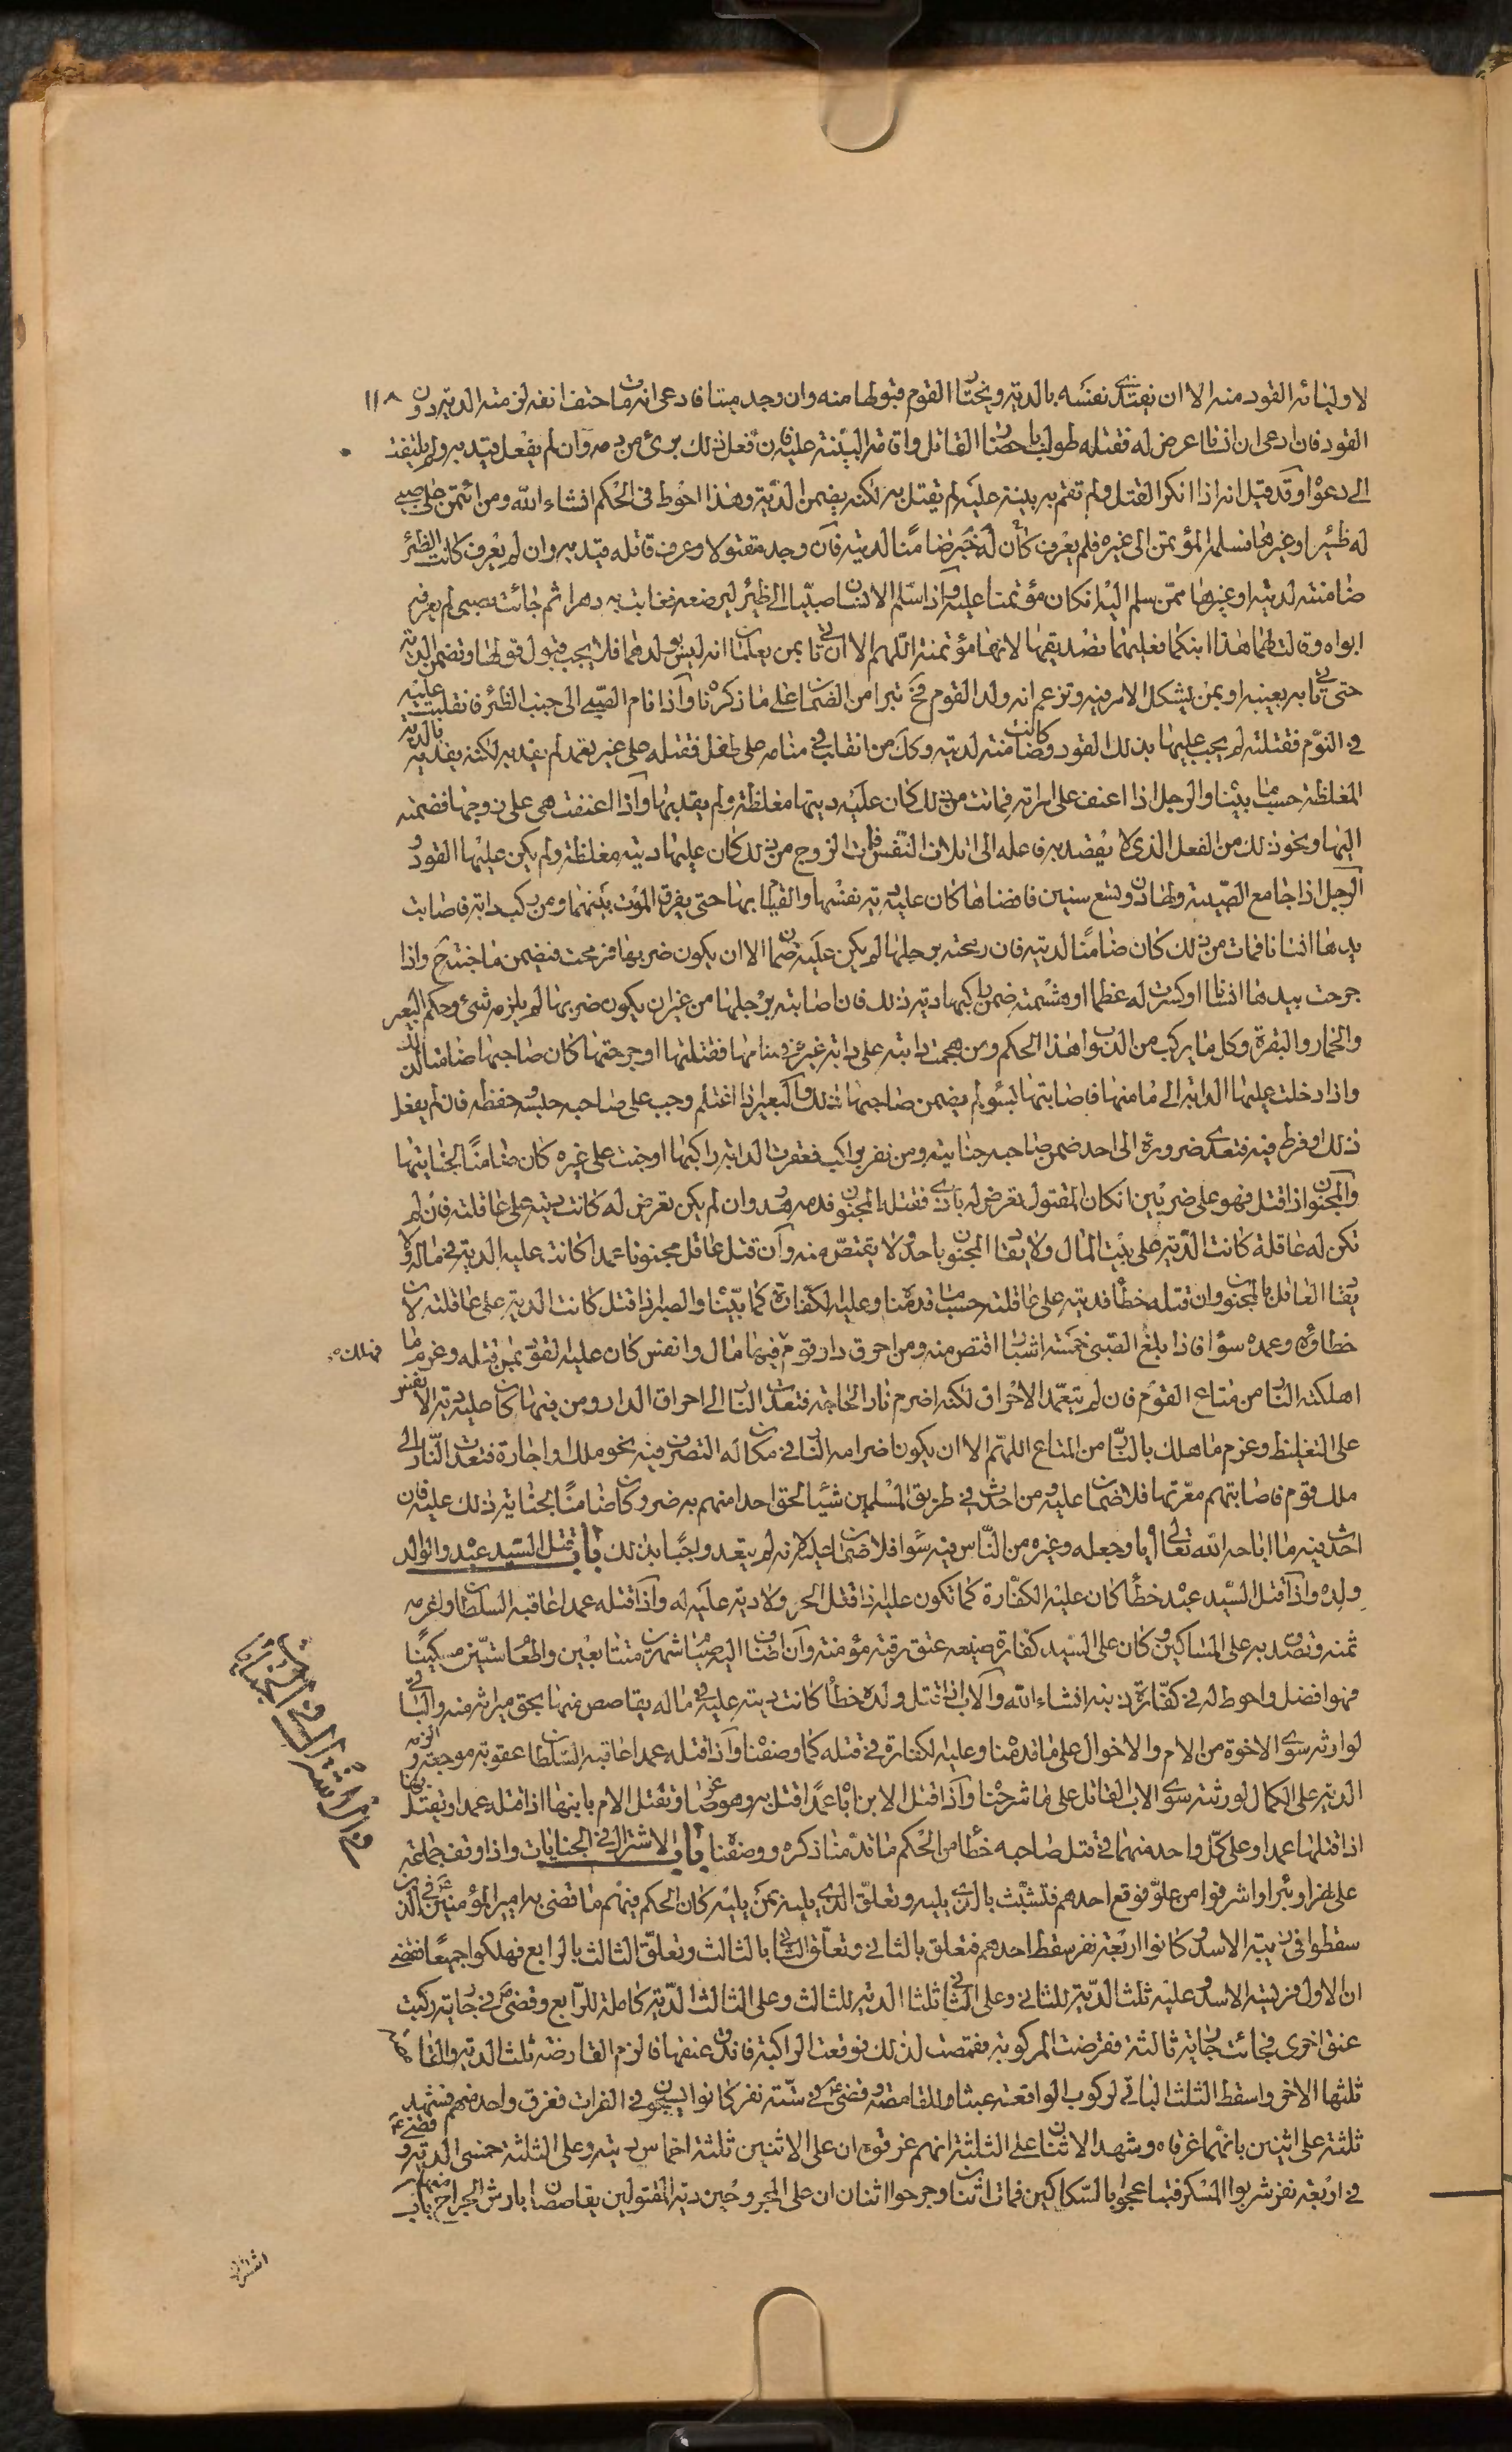 ١١٨
لاوليائه القود منه الا ان يفتدى نفسه بالدية ويختار القوم قبولها منه وان وجد ميتا فادعى انه مات حتف انفه لزمته الدية دون
القود فان ادعى ان انسانا عرض له فقتله طولب باحضار القاتل واقامة البينة عليه فان فعل ذلك برئ من دمه وان لم يفعل قيد به ولم يلتفت
الى دعواه وقد قيل انه اذا انكر القتل ولم تقم به بينة عليه لم يقتل به لكنه يضمن الدية وهذا احوط فى الحكم انشاء الله ومن ائتمن على صبى
له ظئيرا وغيرها فسلمه المؤتمن الى غيره فلم يعرف كان له خبر ضامنا لديته فان وجد مقتولا وعرف قاتله قيد به وان لم يعرف كانت الظئر
ضامنته لديته او غيرها ممن سلم اليه انكان مؤتمنا عليه واذا سلم الانسان صبيا الى ظئر ليرضعه فغابت به دهرا ثم جائت بصبى لم يعرفه
ابواه وقالت لهما هذا ابنكما فعليهما تصديقها لانها مؤتمنة اللهم الا ان تاتى بمن يعلمان انه ليس بولدهما فلا يجب قبول قولها وتضمن الدية
حتى تاتى به بعينه او بمن يشكل الامر فيه وتزعم انه ولد القوم فح تبرا من الضمان على ما ذكرناه واذا نام الصبى الى جنب الظئر فانقلبت عليه
فى النوم فقتلته لم يجب عليها بذلك القود وكانت ضامنته لديته وكل من انقلب فى منامه على طفل فقتله على غير تعمد لم يقد به لكنه يفديه بالدية
المغلظة حسب ما بيناه والرجل اذا اعنف على امرأته فماتت من ذلك كان عليه ديتها مغلظة ولم يقد بها واذا اعنفت هى على زوجها فضمته
اليها ونحو ذلك من الفعل الذى لا يقصد به فاعله الى اتلاف النفس فمات الزوج من ذلك كان عليها ديته مغلظة ولم يكن عليها القود و
الرجل اذا جامع الصبية ولها دون تسع سنين فافضاها كان عليه دية نفسها والقيام بها حتى يفرق الموت بينهما ومن ركب دابة فاصابت
بيدها انسانا فمات من ذلك كان ضامنا لديته فان رمحته برجلها لم يكن عليه ضمان الا ان يكون ضربها فرمحت فيضمن ما جنته ح واذا
جرحت بيدها انسانا او كسرت له عظما او هشمته ضمن راكبها دية ذلك فان اصابته برجلها من غير ان يكون ضربها لم يلزمه شئ وحكم البعير
والحمار والبقرة وكل ما يركب من الدواب هذا الحكم ومن هجمت دابته على دابة غيره فى منامها فقتلتها او جرحتها كان صاحبها ضامنا لذلك
واذا دخلت عليها الدابة الى مامنها فاصابتها بسوء لم يضمن صاحبها ذلك والبعير اذا اغتلم وجب على صاحبه حبسه وحفظه فان لم يفعل
ذلك او فرط فيه فتعدى ضرره الى احد ضمن صاحبه جنايته ومن نفر براكب فعقرت الدابة راكبها او جنت على غيره كان ضامنا لجنايتها
والمجنون اذا قتل فهو على ضربين انكان المقتول تعرض له باذى فقتله المجنون فدمه هدر وان لم يكن تعرض له كانت ديته على عاقلته فان لم
تكن له عاقلة كانت الدية على بيت المال ولا يقاد المجنون باحد ولا يقتص منه وان قتل عاقل مجنونا عمدا كانت عليه الدية فى ماله ولا
يقاد العاقل بالمجنون وان قتله خطأ فديته على عاقلته حسب ما قدمناه وعليه الكفارة كما بيناه والصبى اذا قتل كانت الدية على عاقلته لان
خطاؤه وعمده سواء فاذا بلغ الصبى خمسة اشبار اقتص منه ومن احرق دار قوم فهلك فيها مال وانفس كان عليه القود بمن قتله وغرم ما
اهلكته النار من متاع القوم فان لم يتعمد الاحراق لكنه اضرم نارا لحاجة فتعدت النار الى احراق الدار ومن فيها كان عليه دية الانفس
على التغليظ وغرم ما هلك بالنار من المتاع اللهم الا ان يكون اضرامه النار فى مكان له التصرف فيه بحق ملك او اجارة فتعدت النار الى
ملك قوم فاصابتهم معرتها فلا ضمان عليه ومن احدث فى طريق المسلمين شيئا لحق احدا منهم به ضرر كان ضامنا بجناية ذلك عليه فان
احدث فيه ما اباحه الله تعالى اياه وجعله وغيره من الناس فيه سواء فلا ضمان عليه لانه لم يتعد واجبا بذلك باب قتل السيد عبده والوالد
ولده واذا قتل السيد عبده خطأ كان عليه الكفارة كما تكون عليه اذا قتل الحر ولا دية عليه له واذا قتله عمدا عاقبه السلطان واغرمه
ثمنه وتصدق به على المساكين وكان على السيد كفارة صنيعه عتق رقبة مؤمنة وان اضاف اليه صيام شهرين متتابعين واطعام ستين مسكينا
فهو افضل واحوط له فى كفارة ذنبه انشاء الله والاب اذا قتل ولده خطأ كانت ديته عليه فى ماله يقاصص منها بحق ميراثه منه والباقى
لوارثه سوى الاخوة من الام والاخوال على ما قدمناه وعليه الكفارة فى قتله كما وصفناه واذا قتله عمدا عاقبه السلطان عقوبة موجعة والزمه
الدية على الكمال لورثته سوى الاب القاتل على ما شرحناه واذا قتل الابن اباه عمدا قتل به وهو صاغر وتقتل الام بابنها اذا قتله عمدا ويقتل بها
اذا قتلها عمدا وعلى كل واحد منهما فى قتل صاحبه خطأ من الحكم ما قدمنا ذكره ووصفناه باب الاشتراك فى الجنايات واذا وقف جماعة
على نهر او بئر او اشرفوا من علو فوقع احدهم فتشبث بالذى يليه وتعلق الذى يليه بمن يليه كان الحكم فيهم ما قضى به امير المؤمنين ع فى الذين
سقطوا فى زبية الاسد وكانوا اربعة نفر سقط احدهم فتعلق بالثانى وتعلق الثانى بالثالث وتعلق الثالث بالرابع فهلكوا جميعا فقضى
ان الاول فريسة الاسد وعليه ثلث الدية للثانى وعلى الثانى ثلثا الدية للثالث وعلى الثالث الدية كاملة للرابع وقضى ع فى جارية ركبت
عنق اخرى فجائت جارية ثالثة فقرصت المركوبة فقمصت لذلك فوقعت الراكبة فاندق عنقها فالزم القارصة ثلث الدية والقامصة
ثلثها الاخر واسقط الثلث الباقى لركوب الواقعة عبثا وللقامصة وقضى ع فى ستة نفر كانوا يسبحون فى الفرات فغرق واحد منهم فشهد
ثلثة على اثنين بانهما غرقاه وشهد الاثنان على الثلثة انهم غرقوه ان على الاثنين ثلثة اخماس ديته وعلى الثلثة خمسى الدية وقضى ع
فى اربعة نفر شربوا المسكر فتباعجوا بالسكاكين فمات اثنان وجرحوا اثنان ان على المجروحين دية المقتولين يقاصصان بارش الجراح منهما باب
اشتراك